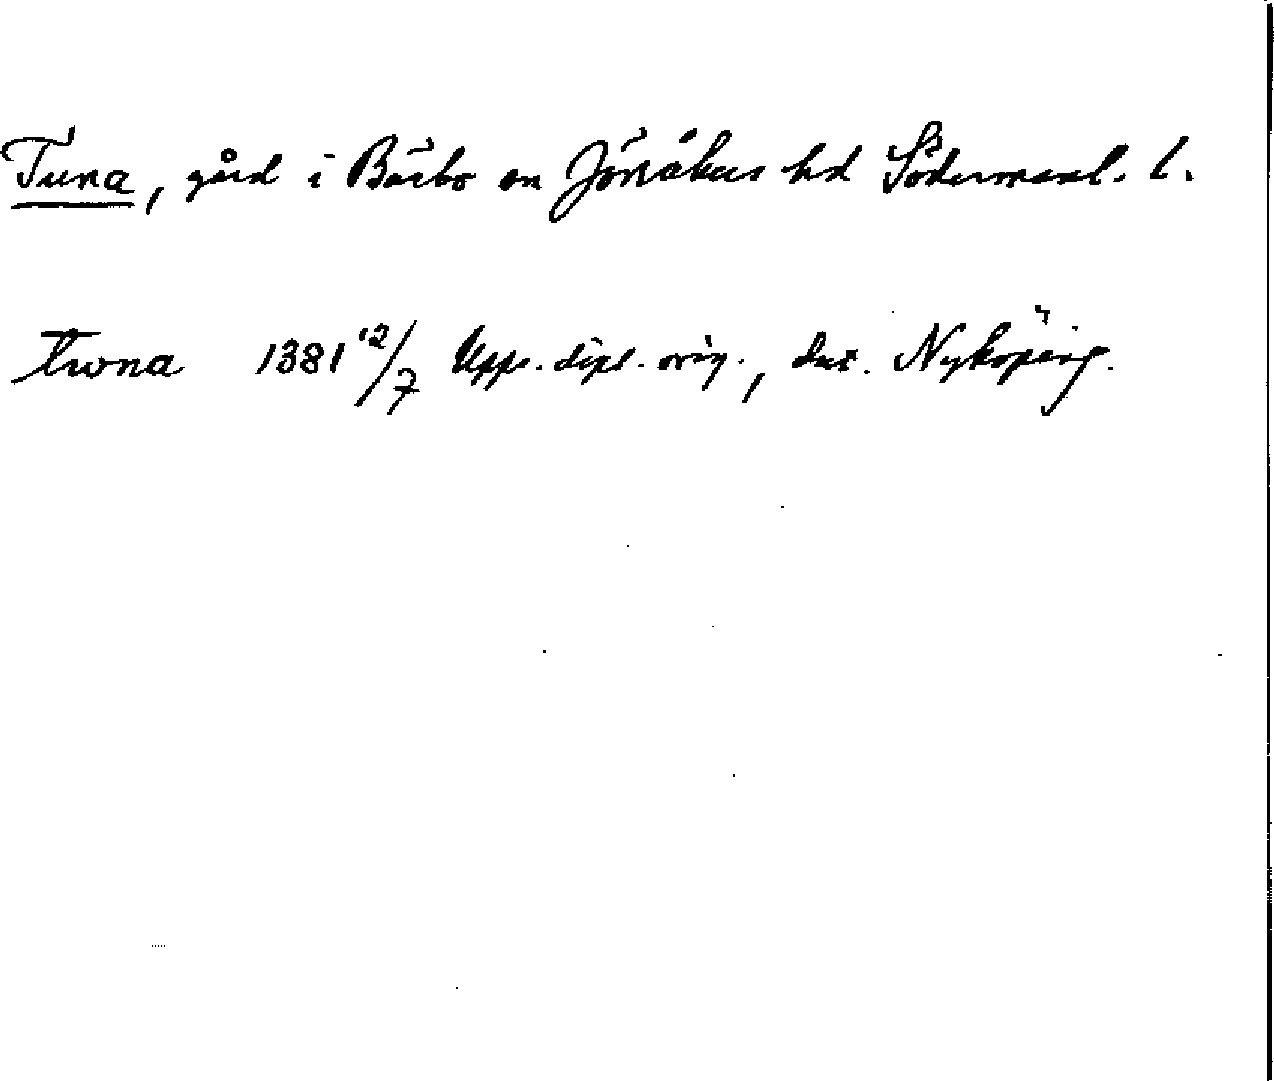 Tuna, gård i Bärbo sn Jönåkers hd Södermanl. l.
twna 1381 12/7 Upps. dipl. orig., dat. Nyköping.